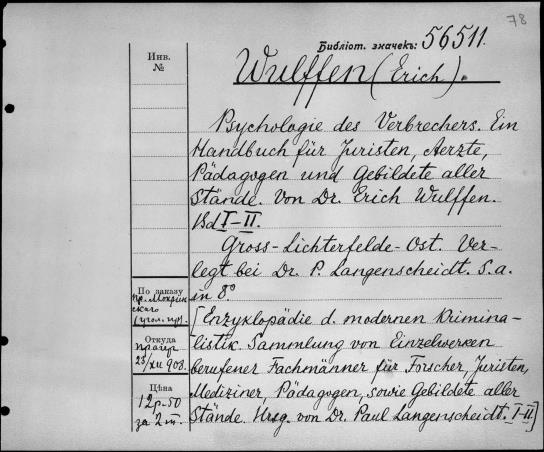 78
Библіот. значекъ: 56511.
Инв.
№
Wulffen (Erich).
Psychologie des Verbrechers. Ein
Handbuch für Juristen, Aerzte,
Pädagogen und Gebildete aller
Stände. Von Dr. Erich Wulffen.
Bd I-II.
Gross-Lichterfelde-Ost. Ver-
legt bei Dr. P. Langenscheidt. S. a.
in 8º
[Enzyklopädie d. modernen Krimina-
listik. Sammlung von Einzelwerken
berufener Fachmänner für Forscher, Juristen,
Mediziner, Pädagogen, sowie Gebildete aller
Stände. Hrsg. von Dr. Paul Langenscheidt. I-II]
По заказу
пр.
скаго
Откуда
25/XII 908.
Цѣна
12р-50
за 2 т.